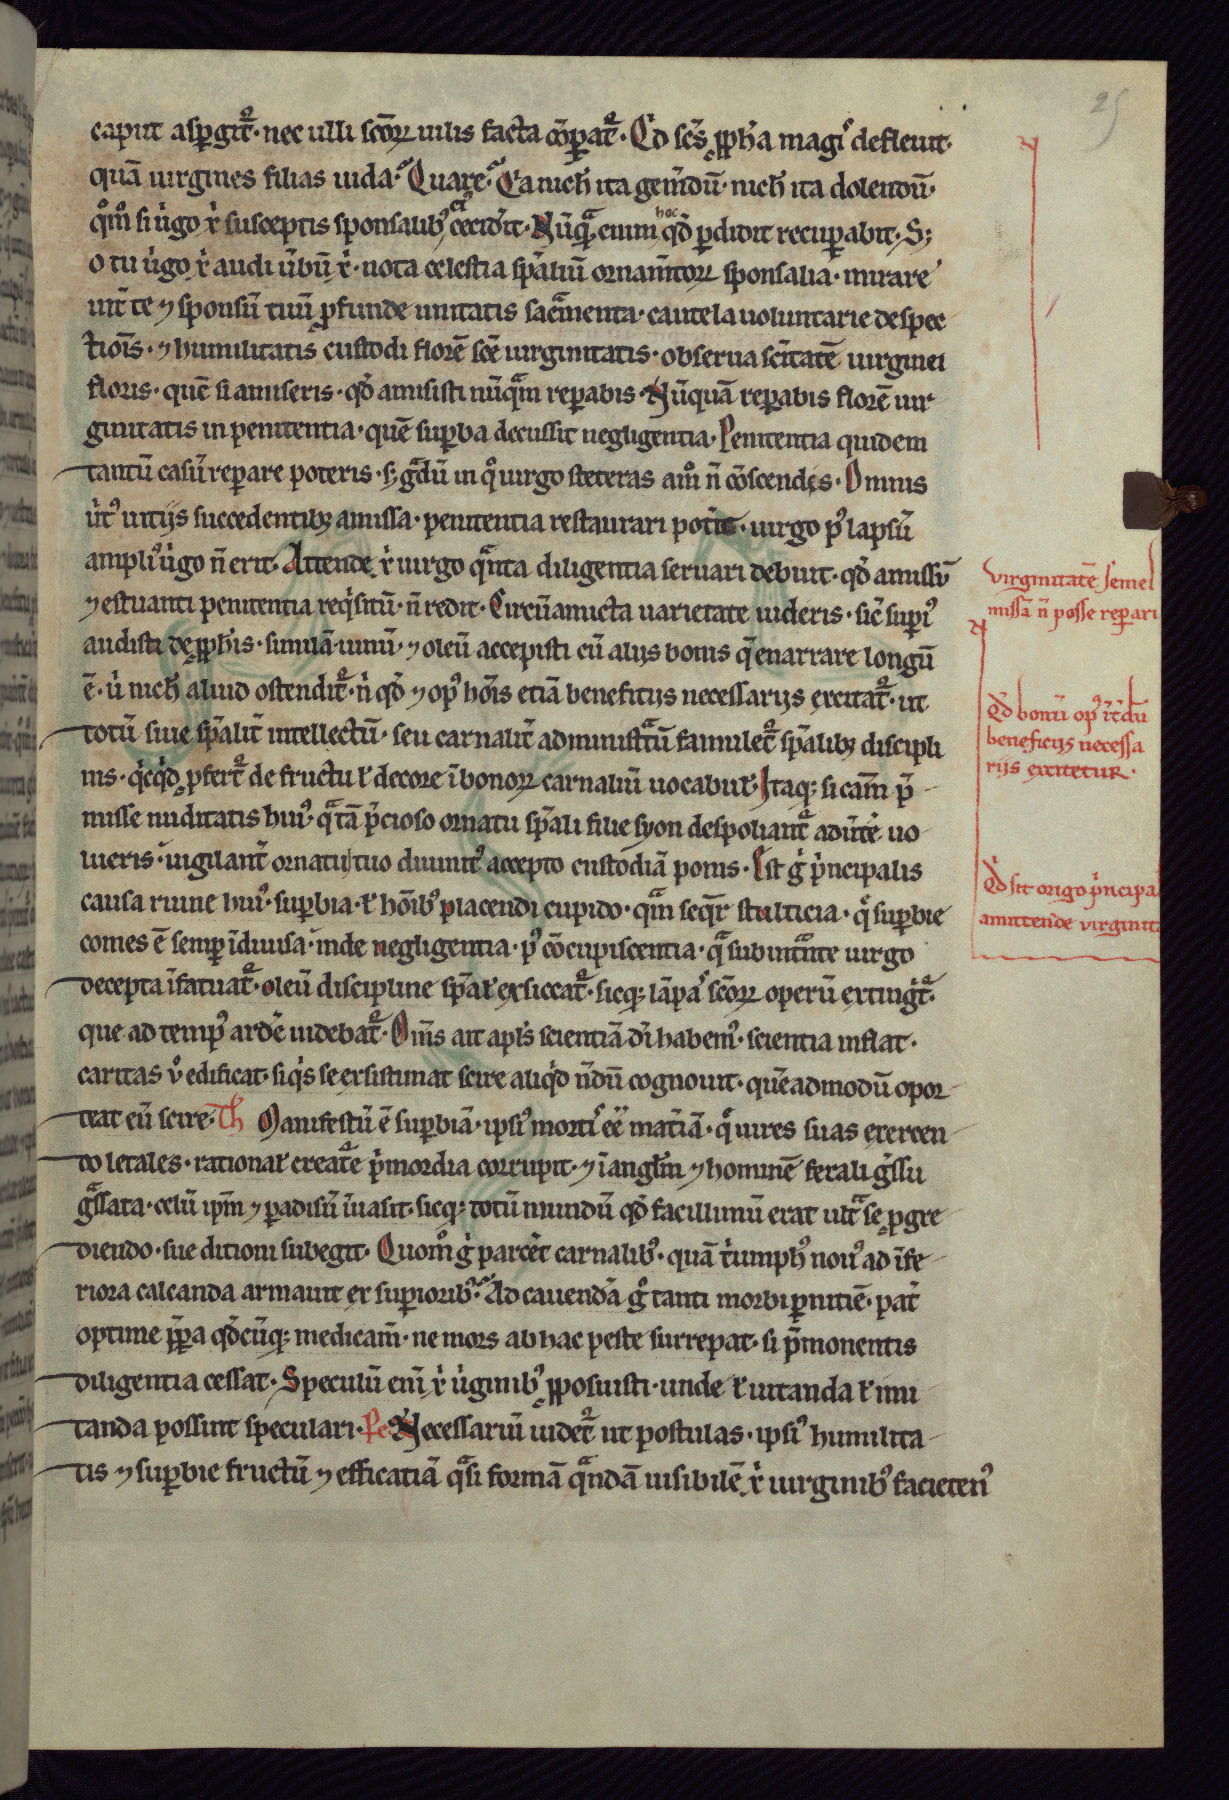 25
caput aspgit᷑·nec ulli sc̄oꝝ uilis facta cōpat᷑·Qd̄ sc̄s ꝓph̄a magꝭ defleuit·
quā uirgines filias iuda·Quare·Ca nich̄ ita gem̄dū·nich̄ ita dolendū·
qm̄ si ūgo xp̄i susceptis sponsalibꝰ ceciderit·Nūqͣ enim hoc qd̄ ꝑdidit recuꝑabit·S;
o tu ūgo xp̄i audi ūbū xp̄i·nota celestia sp̄aliū ornam̄toꝝ sponsalia·mirare
int̄ te ⁊ sponsū tuū ꝓfunde unitatis sacͣmenta·cautela uoluntarie despec-
tiōis·⁊ humilitatis custodi florē sc̄e uirginitatis·obserua sc̄itatē uirginei
floris·quē si amiseris·qd̄ amisisti nūqͣm reꝑabis·Nūquā reꝑabis florē uir-
ginitatis in penitentia·quē suꝑba decussit negligentia·Penitentia quidem
tantū casū reꝑare poteris·s; gͣdū in qͦ uirgo steteras amͦ n̄ cōscendes·Omnis
ūtꝰ uitijs succedentibꝫ amissa·penitentia restaurari potit·uirgo pꝰ lapsū
ampliꝰ ūgo n̄ erit·Attende xp̄i uirgo qͣnta diligentia seruari debuit·qd̄ amissū
⁊ estuanti penitentia reqͥsitū·n̄ redit·Circūamicta uarietate uideris·sic̄ supͥꝰ
audisti de ꝓph̄is·similā·uinū·⁊ oleū accepisti cū alijs bonis q̄ enarrare longū
ē·ū nich̄ aliud ostendit᷑·nͥ qd̄ ⁊ opꝰ hōis etiā beneficijs necessarijs excitat᷑·ut
totū siue sp̄alit̄ intellectū·seu carnalit̄ administͣtū famulet᷑ sp̄alibꝫ discipli
nis·qͥcqͥd ꝓfert᷑ de fructu ł decore ī bonoꝝ carnaliū uocabuł·Itaqꝫ si cam̄ p̄-
misse nuditatis huiꝰ·qͣ tā p̄cioso ornatu sp̄ali filie syon despoliant᷑ adūtēr̄ uo-
lueris·uigilant̄ ornatui tuo diuinitꝰ accepto custodiā ponis·Est gͦ pͥncipalis
causa ruine huiꝰ·suꝑbia·ł hōibꝰ placendi cupido·qͣm seqͥr stulticia·qͥ suꝑbie
comes ē semꝑ īdiuisa·inde negligentia·pꝰ cōcupiscentia·qͣ subintͣnte uirgo
decepta īfatuat᷑·oleū discipline sp̄ał exsiccat᷑·sicqꝫ lāpaꝰ sc̄oꝝ operū extingͥt᷑·
que ad tempꝰ ardēr̄ uidebat᷑·Om̄s ait apl̄s scientiā dī habemꝰ·scientia inflat·
caritas uͦ edificat·si qͥs se exsistimat scire aliqͥd n̄dū cognouit·quēadmodū opor-
teat eū scire·Th Manifestū ē suꝑbiā·ipsiꝰ mortꝭ eē mat̄iā·qͥ uires suas exercen-
do letales·rationał creatͣe pͥmordia corrupit·⁊ ī angl̄m ⁊ hominē ferali gͥssu
gͣssata·celū ip̄m ⁊ ꝑadisū īuasit·sicqꝫ totū mundū qd̄ facillimū erat ultͣ se ꝓgre-
diendo·sue ditioni subegit·Quomͦ gͦ parcet̄ carnalibꝰ·quā tͥumphꝰ nouꝰ ad īfe-
riora calcanda armauit ex superioribꝰ·Ad cauendā gͦ tanti morbi ꝑnitiē·pat̄
optime pp̄a qd̄cūqꝫ medicam̄·ne mors ab hac peste surrepat·si p̄monentis
diligentia cessat·Speculū enī xp̄i ūginibꝰ ꝓposuisti·unde ł uitanda ł imi-
tanda possint speculari·Pe Necessariū uidet᷑ ut postulas·ipsiꝰ humilita-
tis ⁊ suꝑbie fructū ⁊ efficatiā qͣsi formā qͣndā uisibilē xp̄i uirginibꝰ facietenꝰ
Virginitatē semel
missā n̄ posse reꝑari
Qd̄ bonū opꝰ
beneficijs necessa
rijs excitetur·
Qd̄ sit origo pͥncipa
amittende virginit